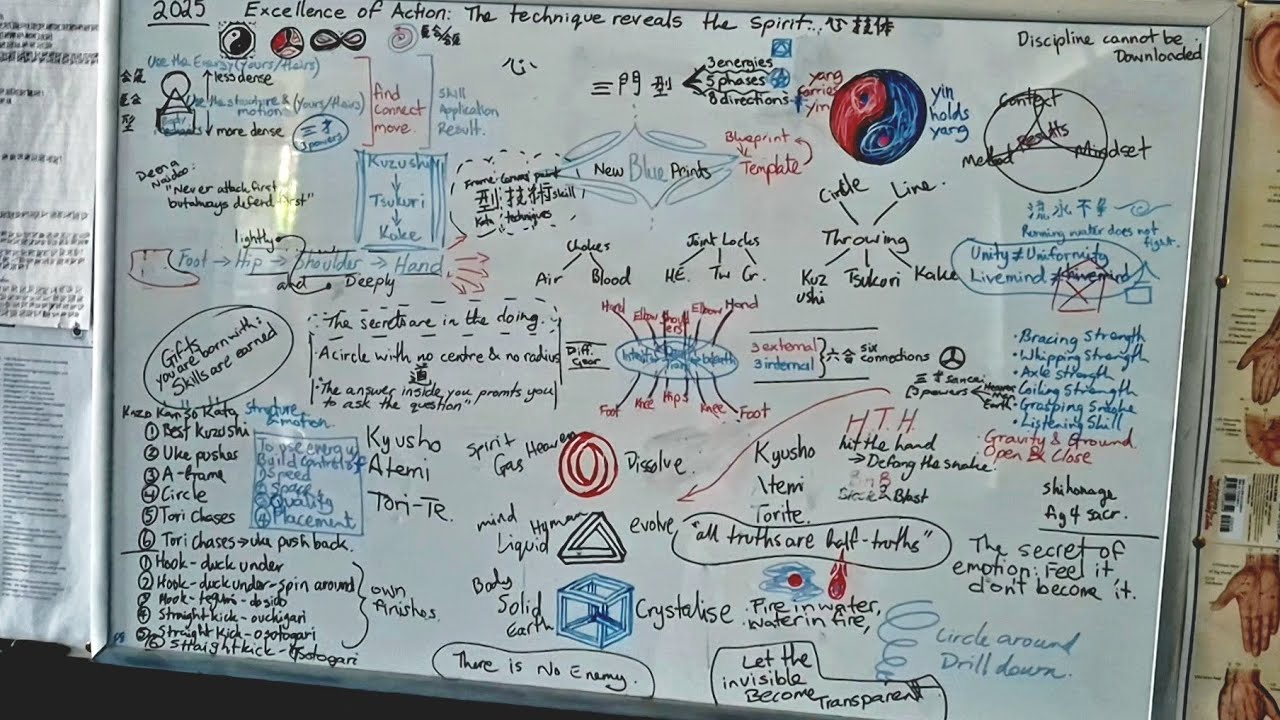 2025 Excellence of Action: The technique reveals the spirit... 心技体
Discipline cannot be
Downloaded
Use the Energy (Yours/Theirs)
less dense
Use the structure &
motion (Yours/Theirs)
more dense
三才
3 powers
型
find
connect
move.
Skill
Application
Result.
心
三門型
3 energies
5 phases
8 directions
yang
carries
yin
yin
holds
yang
Context
Results
Method
Mindset
Deena
Naidoo:
"Never attack first
but always defend first"
Kuzushi
Tsukuri
Kake
Frame: Comms' point
型:技術 skill
Kata techniques
New Blue Prints
Blueprint
Template
Circle
Line.
Throwing
Kuz
ushi
Tsukuri
Kake
流水不争
Running water does not
fight.
Unity ≠ Uniformity
Livemind ≠
lightly
Foot → Hip → Shoulder → Hand
and Deeply
Chokes
Air
Blood
Joint Locks
HE. Tw Cr.
Gifts
you are born with:
Skills are earned
The secrets are in the doing.
A circle with no centre & no radius
道
"The answer inside you promts you
to ask the question"
Diff.
Gear
Hand
Elbow
Shoulders
Elbow
Hand
Foot
Knee
Hips
Knee
Foot
3 external
3 internal
六合 six
connections
三才 sancai
3 powers
Heaven
Man
Earth
• Bracing strength
• Whipping strength
• Axle strength
• Coiling strength
• Grasping
• Listening Skill
Gravity & Ground.
Open & Close
Kazo Kamiso Kata
structure
& motion.
① Best Kuzushi
② Uke pushes
③ A-frame
④ Circle
⑤ Tori Chases
⑥ Tori chases → uke push back.
To use energy
Build control of
① Speed
② Space
③ Quality
④ Placement
Kyusho
Atemi
Tori-Te.
Spirit
Gas
Heaven
Dissolve.
mind
Liquid
Human
evolve
Body
Solid
Earth
Crystalise
Kyusho
Atemi
Torite.
H.T.H.
hit the hand
→ Defang the snake.
Blast
shihonage
Ag 4 sacr.
"all truths are half-truths"
The secret of
emotion: Feel it,
don't become it.
① Hook-duck under
② Hook-duck under-spin around
④ Straight kick-ouchigari
⑤ Straight kick-osotogari
⑥ Straight kick-osotogari
own
finishes
• Fire in water,
water in fire,
Circle around
Drill down.
There is No Enemy.
Let the
invisible
Become Transparent